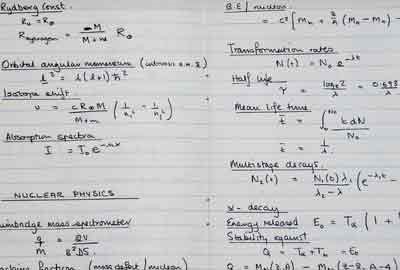 Rydberg Const.
R∞ = R∞
R hydrogen = M / M+m R∞
Orbital angular momentum (intrinsic a.m. s)
l² = l(l+1)ħ²
Isotope shift
υ = cR∞M / M+m (1/n₁² - 1/n₂²)
Absorption spectra
I = I₀e^-nx
NUCLEAR PHYSICS
mass spectrometer
q/M = 2V / B²DS
fraction (mass defect/nucleon)
B.E/nucleon
= c²[Mn + (Mn - Mn) -
Transformation rates
N(t) = N₀e^-λt
Half life
τ = loge2 / λ = 0.693 / λ
Mean life time
t̄ = ∫ t dN / N₀
t̄ = 1/λ
Multistage decays.
N₂(t) = N₁(0)λ₁ / λ₂-λ (e^-λ₁t -
α-decay
Energy released E₀ = Tα (1 +
Stability against
Q = Tα + Tb = E₀
Q = (Z,A) - (Z-2, A-4)